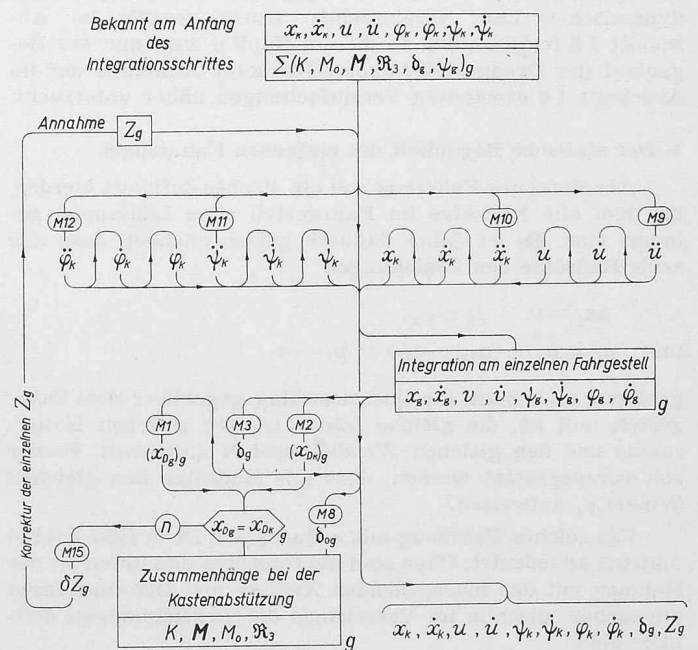 Bekannt am Anfang
des
Integrationsschrittes
xₖ, ẋₖ, u, u̇, φₖ, φ̇ₖ, ψₖ, ψ̇ₖ
∑(K, M₀, M, ℜ₃, δ₈, ψ₈)g
Annahme
Zg
M12
M11
M10
M9
φ̈ₖ φ̇ₖ φₖ ψ̈ₖ ψ̇ₖ ψₖ ẍₖ ẋₖ xₖ u u̇ ü
Integration am einzelnen Fahrgestell
x₈, ẋ₈, v, v̇, ψ₈, ψ̇₈, φ₈, φ̇₈
g
Korrektur der einzelnen Zg
M1
M3
M2
(x₀₈)g
δg
(x₀ₖ)g
M8
δ₀g
n
x₀g = x₀ₖ
g
M15
δZg
Zusammenhänge bei der
Kastenabstützung
K, M, M₀, ℜ₃
g
xₖ, ẋₖ, u, u̇, ψₖ, ψ̇ₖ, φₖ, φ̇ₖ, δg, Zg